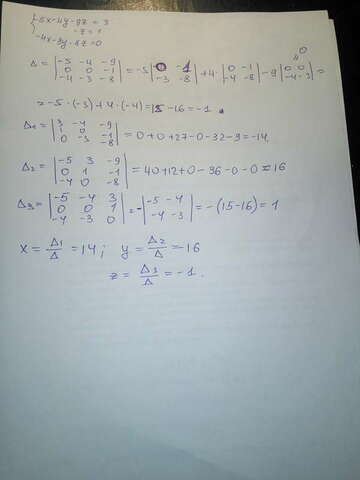 {-5x-4y-9z=3
-z=1
-4x-3y-8z=0
Δ = |-5 -4 -9; 0 0 -1; -4 -3 -8| = -5 |0 -1; -3 -8| + 4·|0 -1; -4 -8| - 9|0 0; -4 -3| =
= -5·(-3)+4·(-4)=15-16=-1.
Δ1 = |3 -4 -9; 1 0 -1; 0 -3 -8| = 0+0+27-0-32-9=-14.
Δ2 = |-5 3 -9; 0 1 -1; -4 0 -8| = 40+12+0-36-0-0=16
Δ3 = |-5 -4 3; 0 0 1; -4 -3 0| = -|-5 -4; -4 -3| = -(15-16)=1
x = Δ1/Δ = 14; y = Δ2/Δ = -16
z = Δ3/Δ = -1.